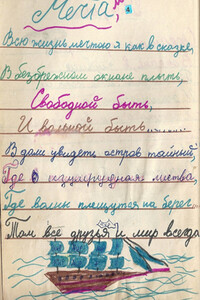 Мечта
Всю жизнь мечтою я как в сказке,
В безбрежном океане плыть,
Свободной быть,
И вольной быть......
Вдали увидеть остров тайный,
Где изумрудная листва,
Где волны плещутся на берег
Там всё друзья и мир всегда